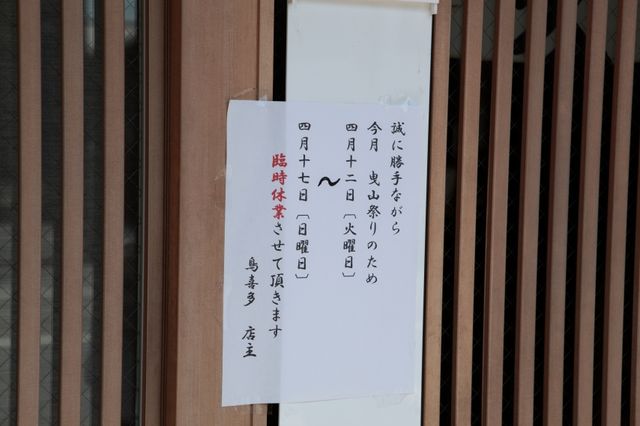 誠に勝手ながら
今月 曳山祭りのため
四月十二日〔火曜日〕
〜
四月十七日〔日曜日〕
臨時休業させて頂きます
鳥喜多 店主